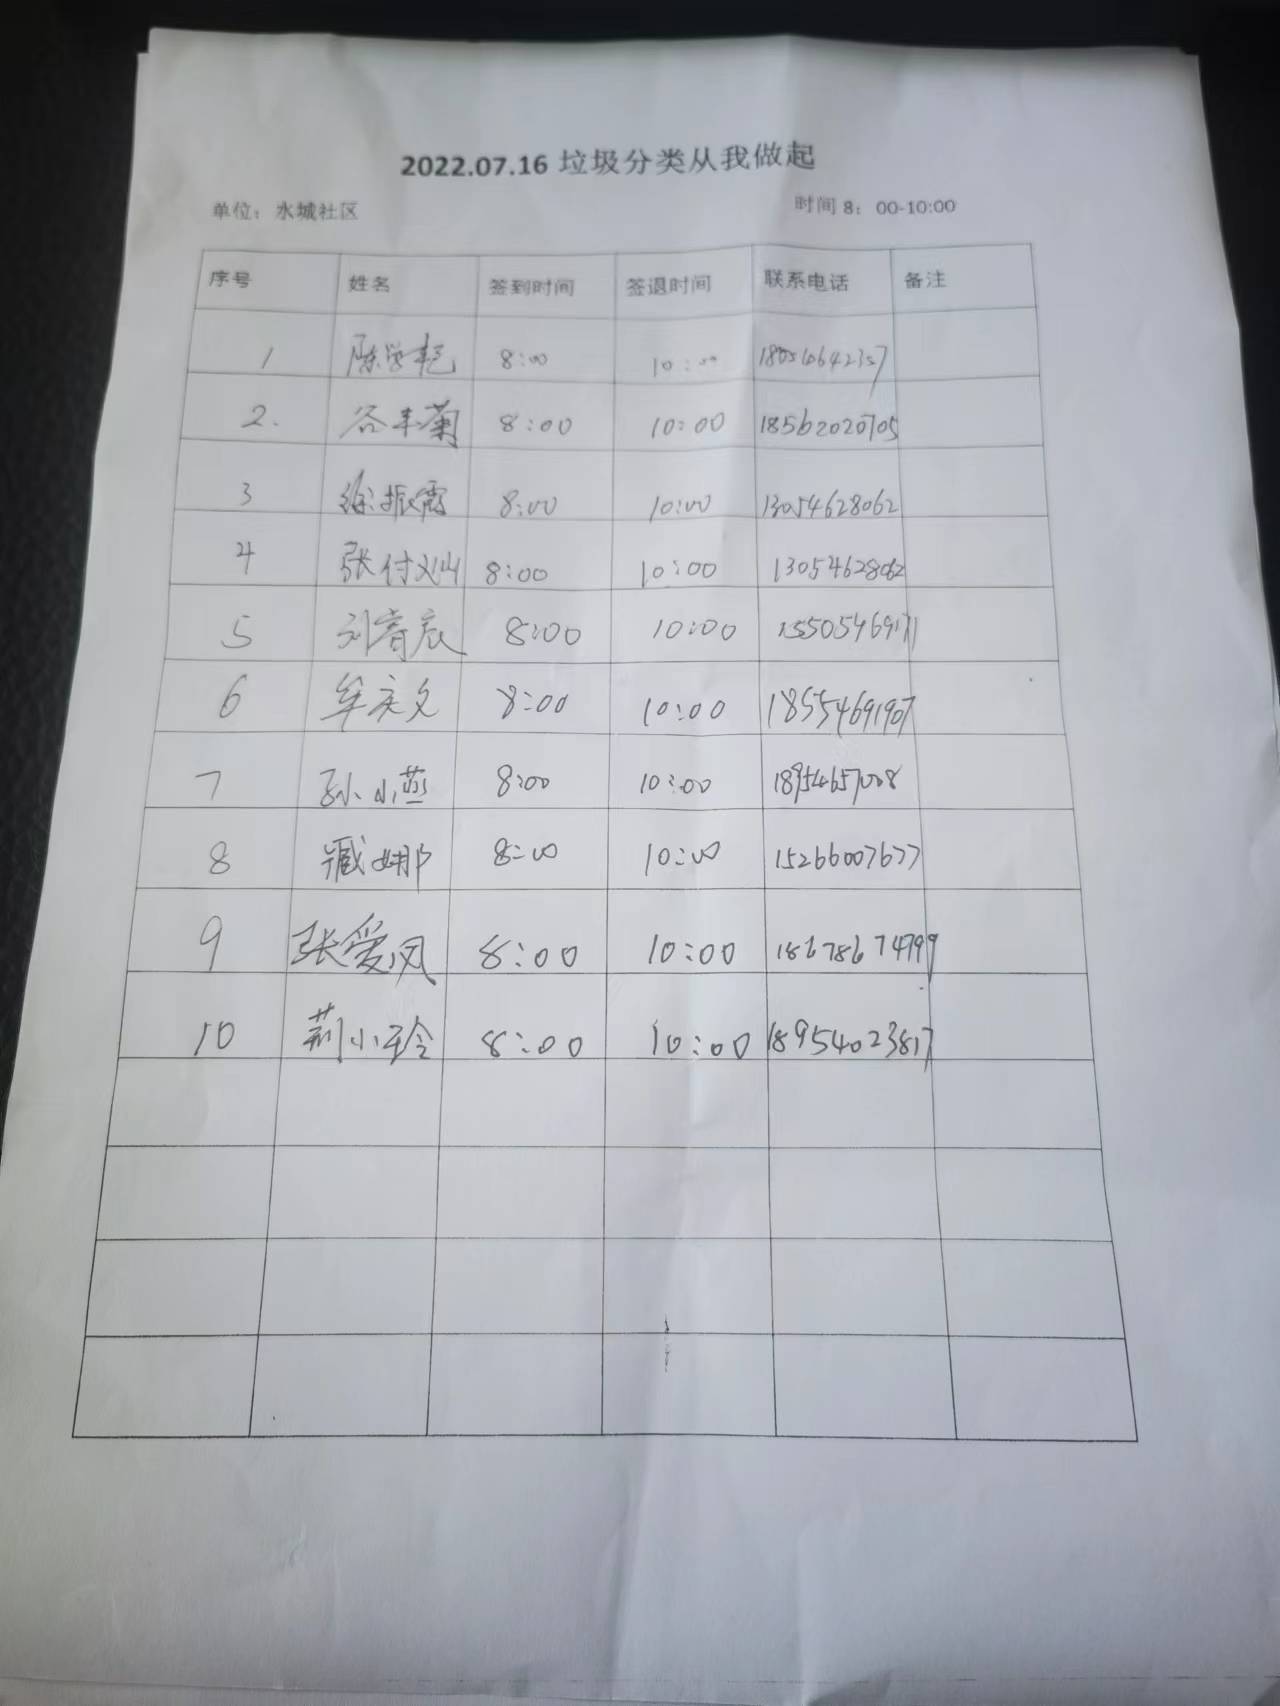 2022.07.16 垃圾分类从我做起
单位：水城社区 时间 8：00-10:00
序号 姓名 签到时间 签退时间 联系电话 备注
1 陈学艳 8:00 10:00
2. 谷丰菊 8:00 10:00 18562020705
3 徐振霞 8:00 10:00 13054628062
4 张付 8:00 10:00 13054628062
5 刘 8:00 10:00
6 牟庆文 8:00 10:00 18554691907
7 孙小燕 8:00 10:00 18954657008
8 臧娜 8:00 10:00 15266007677
9 张爱凤 8:00 10:00 18678674799
10 荆小玲 8:00 10:00 18954023817